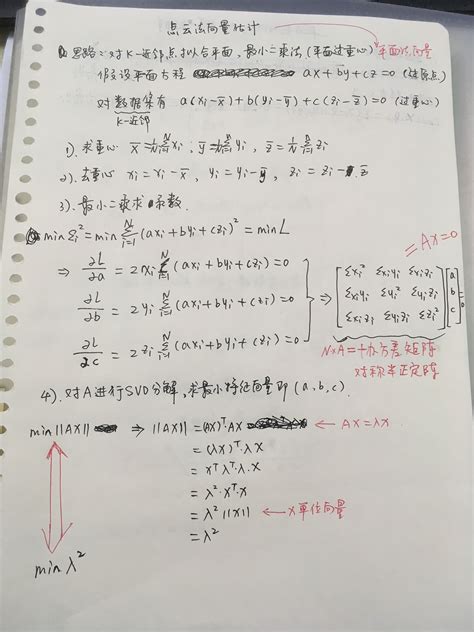 点云法向量估计
① 思路：对K-近邻点拟合平面，最小二乘法（平面过重心）⇒平面法向量
假设平面方程 ax+by+cz=0（过原点）
对数据集有 a(xi-x̄)+b(yi-ȳ)+c(zi-z̄)=0（过重心）
K-近邻
1). 求重心 x̄=1/N Σ(i=1,N) xi, ȳ=1/N Σ(i=1,N) yi, z̄=1/N Σ(i=1,N) zi
2). 去重心 xi=xi-x̄, yi=yi-ȳ, zi=zi-z̄
3). 最小二乘求 函数.
min Σi²=min Σ(i=1,N) (axi+byi+czi)²=min L
=AX=0
⇒ ∂L/∂a = 2xi Σ(i=1,N) (axi+byi+czi)=0
∂L/∂b = 2yi Σ(i=1,N) (axi+byi+czi)=0
∂L/∂c = 2zi Σ(i=1,N) (axi+byi+czi)=0
⇒ [Σxi² Σxiyi Σxizi] [a]
[Σxiyi Σyi² Σyizi] [b] =0
[Σxizi Σyizi Σzi²] [c]
N×A=协方差矩阵
对称半正定阵
4). 对A进行SVD分解，求最小特征向量即(a,b,c).
min||AX|| ⇒ ||AX||=(AX)ᵀAX ⇐ AX=λX
=(λX)ᵀλX
=xᵀλᵀ.λ.X
=λ².Xᵀ.X
=λ²||X|| ⇐ X单位向量
=λ²
min λ²